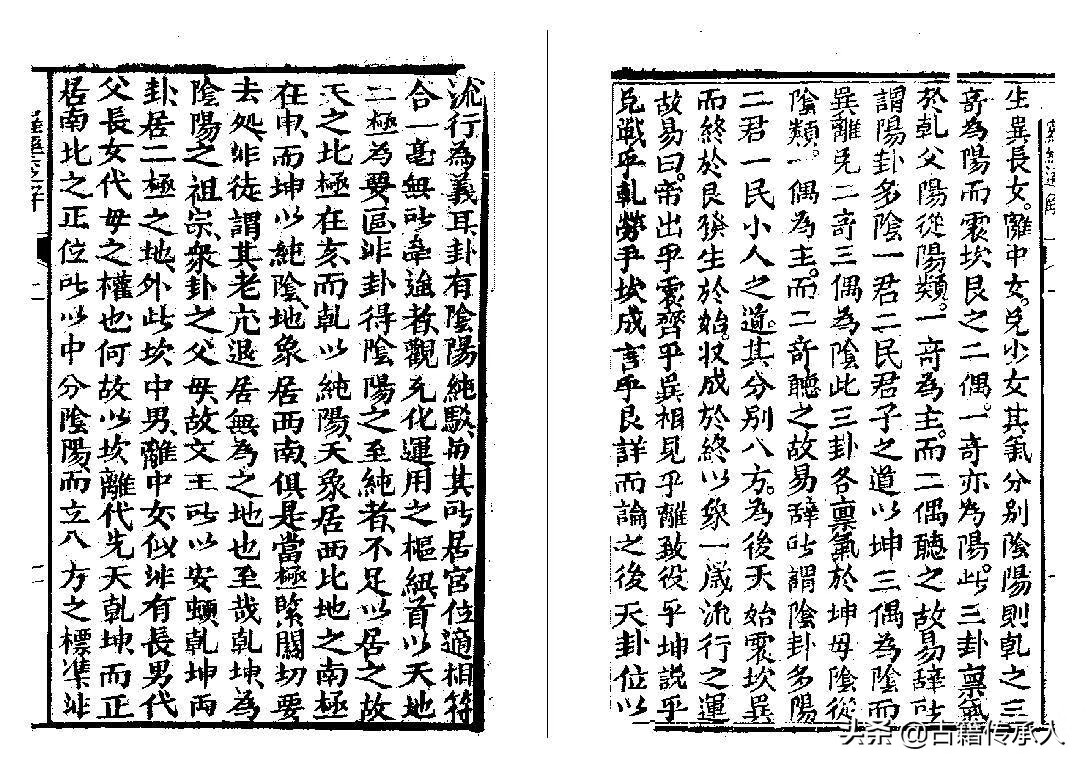 生巽長女。離中女。兌少女其氣分别陰陽則乹之三
竒為陽而震坎艮之二偶。一竒亦為陽。此三卦禀氣
於乹父陽從陽類。一竒為主。而二偶聽之故易辭所
謂陽卦多陰一君二民君子之道以坤三偶為陰而
巽離兌二竒三偶為陰此三卦各禀氣於坤母陰從
陰類。一偶為主。而二竒聽之故易辭所謂陰卦多陽
二君一民小人之道。其分别八方。為後天始震坎巽
而終於艮發生於始。収成於終以象一歲流行之運
故易曰。帝出乎震齊乎巽相見乎離致役乎坤説乎
兌戰乎乹勞乎坎成言乎艮詳而論之後天卦位以
流行為義耳卦有陰陽純駁毎其所居宮位適相符
合一毫無所牽強者觀先化運用之樞紐首以天地
二極為要區非卦得陰陽之至純者不足以居之故
天之北極在亥而乹以純陽天象居西北地之南極
在申而坤以純陰地象居西南俱是當極緊關切要
去処非徒謂其老亢退居無為之地也至哉乹坤為
陰陽之祖宗衆卦之父母故文王所以安頓乹坤両
卦居二極之地外此坎中男離中女似非有長男代
父長女代母之權也何故以坎離代先天乹坤而正
居南北之正位所以中分陰陽而立八方之標凖非
头条 @古籍传承人